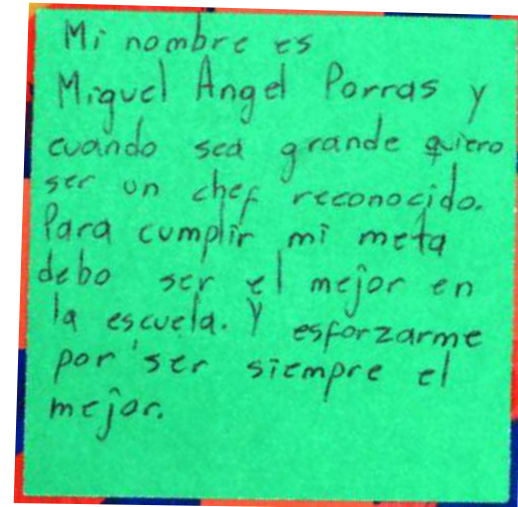 Mi nombre es
Miguel Angel Porras y
cuando sea grande quiero
ser un chef reconocido.
Para cumplir mi meta
debo ser el mejor en
la escuela. Y esforzarme
por ser siempre el
mejor.